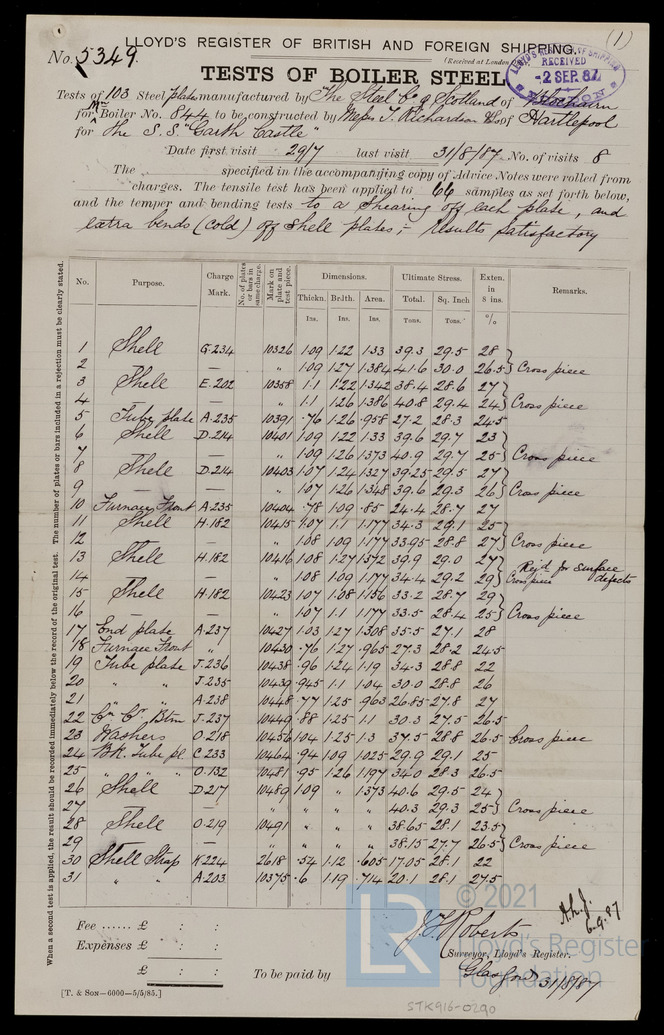 (1)
LLOYD'S REGISTER OF BRITISH AND FOREIGN SHIPPING.
No. 5349.
(Received at London
LLOYD'S REGISTER OF SHIPPING RECEIVED -2 SEP. 87 LONDON
TESTS OF BOILER STEEL
Tests of 103 Steel plates manufactured by The Steel Co of Scotland of Blochairn
for Mn Boiler No. 844 to be constructed by Messrs T. Richardson & Sons of Hartlepool
for the S.S. "Garth Castle"
Date first visit 29/7 last visit 31/8/87 No. of visits 8
The specified in the accompanying copy of Advice Notes were rolled from
charges. The tensile test has been applied to 66 samples as set forth below,
and the temper and bending tests to a Shearing off each plate, and
extra bends (cold) off Shell plates; results satisfactory
When a second test is applied, the result should be recorded immediately below the record of the original test. The number of plates or bars included in a rejection must be clearly stated.
No. Purpose. Charge Mark. No. of plates or bars in same charge. Mark on plate and test piece. Dimensions. Ultimate Stress. Exten. in 8 ins. Remarks.
Thickn. Br'dth. Area. Total. Sq. Inch
Ins. Ins. Ins. Tons. Tons. %
1 Shell G.234 10326 1.09 1.22 1.33 39.3 29.5 28
2 — " 1.09 1.27 1.384 41.6 30.0 26.5 Cross piece
3 Shell E.202 10358 1.1 1.22 1.342 38.4 28.6 27
4 — " 1.1 1.26 1.386 40.8 29.4 24 Cross piece
5 Tube plate A.235 10391 .76 1.26 .958 27.2 28.3 24.5
6 Shell D.214 10401 1.09 1.22 1.33 39.6 29.7 23
7 — " 1.09 1.26 1.373 40.9 29.7 25 Cross piece
8 Shell D.214 10403 1.07 1.24 1.327 39.25 29.5 27
9 — — " 1.07 1.26 1.348 39.6 29.3 26 Cross piece
10 Furnace Front A.235 10404 .78 1.09 .85 24.4 28.7 27
11 Shell H.182 10415 1.07 1.1 1.177 34.3 29.1 25
12 — " 1.08 1.09 1.177 33.95 28.8 27 Cross piece
13 Shell H.182 10416 1.08 1.27 1.372 39.9 29.0 27 Rej'd for surface defects
14 — " 1.08 1.09 1.177 34.4 29.2 29 Cross piece
15 Shell H.182 10423 1.07 1.08 1.156 33.2 28.7 29
16 — — " 1.07 1.1 1.177 33.5 28.4 25 Cross piece
17 End plate A.237 10427 1.03 1.27 1.308 35.5 27.1 28
18 Furnace Front " 10430 .76 1.27 .965 27.3 28.2 24.5
19 Tube plate J.236 10438 .96 1.24 1.19 34.3 28.8 22
20 " " J.235 10439 .945 1.1 1.04 30.0 28.8 26
21 " " A.238 10448 .77 1.25 .963 26.85 27.8 27
22 Cn Cr Btm J.237 10449 .88 1.25 1.1 30.3 27.5 26.5
23 Washers O.218 10456 1.04 1.25 1.3 37.5 28.8 26.5 Cross piece
24 Bk. Tube pl. C.233 10464 .94 1.09 1.025 29.9 29.1 25
25 " " " O.132 10481 .95 1.26 1.197 34.0 28.3 26.5
26 Shell D.217 10489 1.09 " 1.373 40.6 29.5 24
27 — " " " " 40.3 29.3 25 Cross piece
28 Shell O.219 10491 " " " 38.65 28.1 23.5
29 — " " " " 38.15 27.7 26.5 Cross piece
30 Shell Strap K.224 2618 .54 1.12 .605 17.05 28.1 22
31 " " A.203 10375 .6 1.19 .714 20.1 28.1 27.5
Fee ...... £ : :
Expenses £ : :
£ : :
To be paid by
J.H. Roberts
Surveyor, Lloyd's Register.
Glasgow 31/8/87
A.h.J.
6.9.87
[T. & Son—6000—5/5/85.]
© 2021
LR
Lloyd's Register
Foundation
STK916-0290